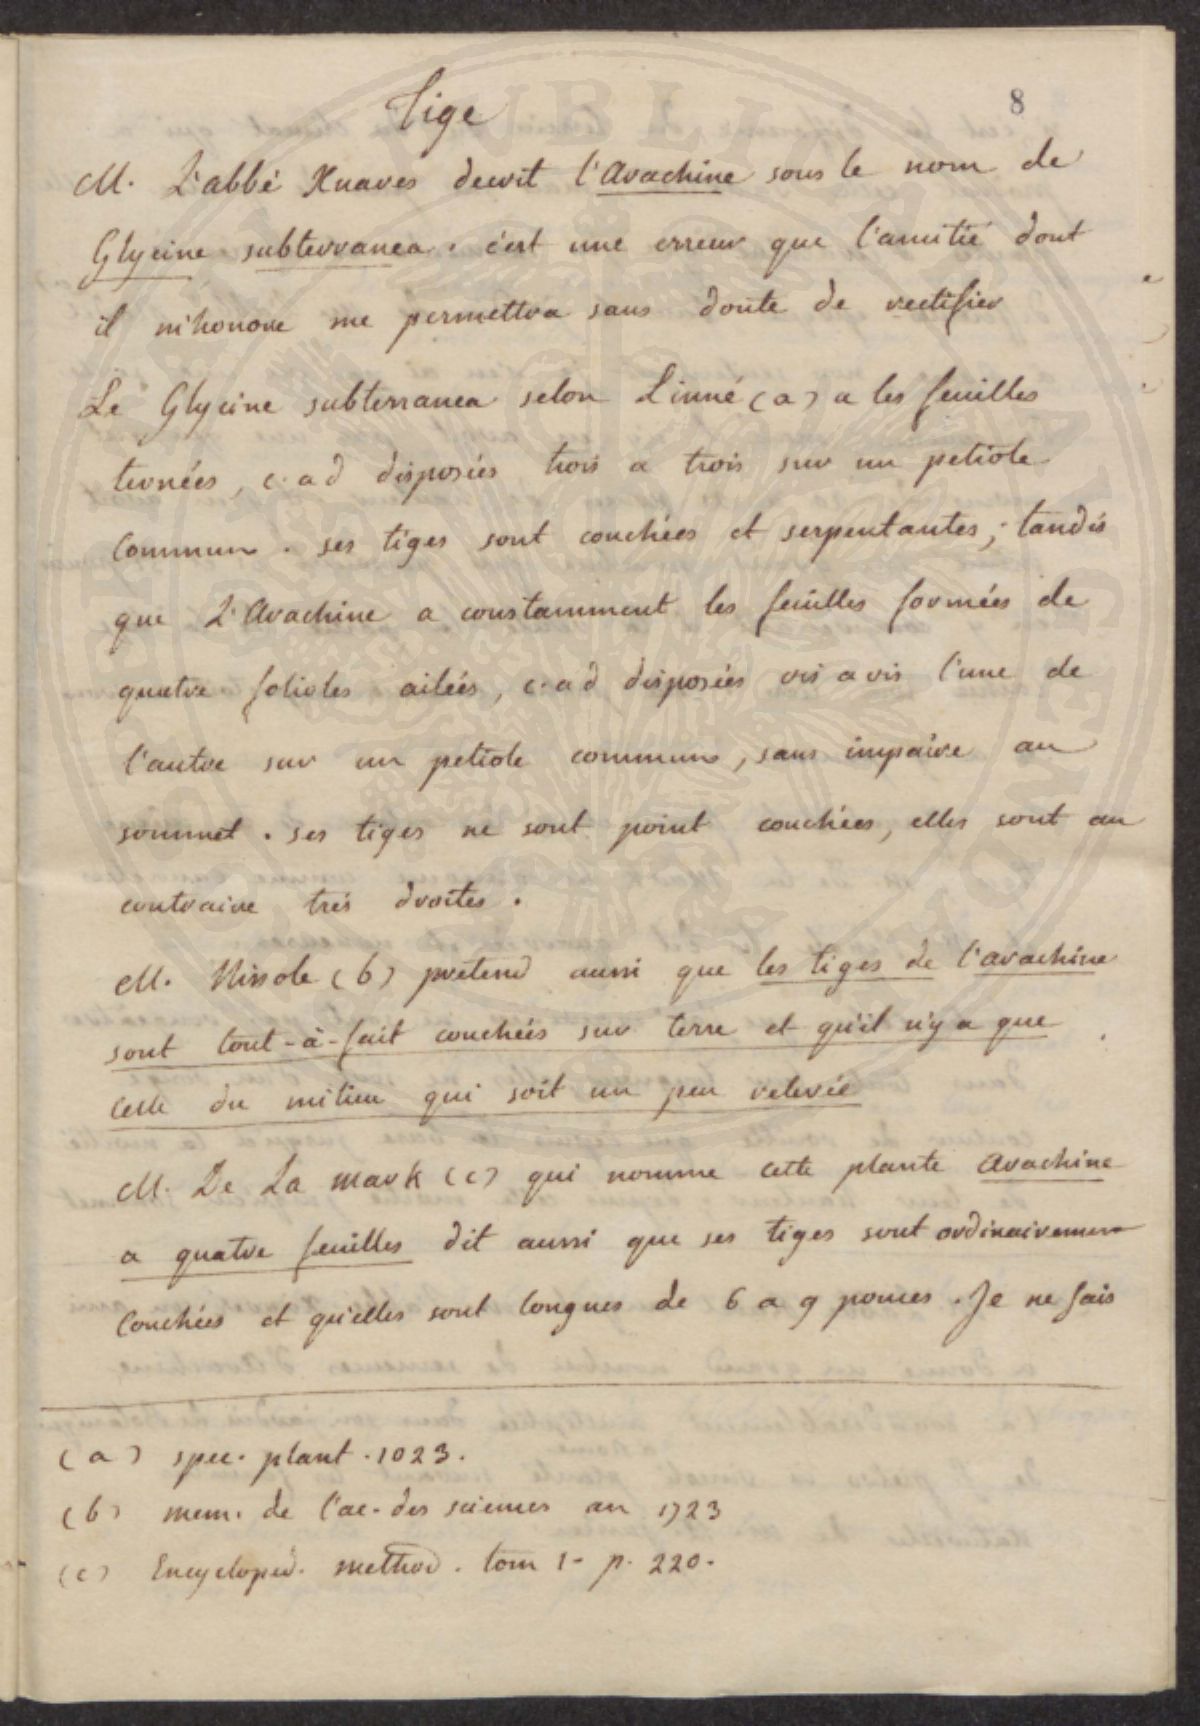 8
Tige
M. L'abbé Xuares decrit l'Arachine sous le nom de
Glycine subterranea. c'est une erreur que l'amitié dont
il m'honore me permettra sans doute de rectifier
Le Glycine subterranea selon Linné (a) a les feuilles
ternées, c.a d disposées trois a trois sur un petiole
commun. ses tiges sont couchées et serpentantes; tandis
que L'Arachine a constamment les feuilles formées de
quatre folioles ailées, c.a d disposées vis a vis l'une de
l'autre sur un petiole commun, sans impaire au
sommet. ses tiges ne sont point couchées, elles sont au
contraire trés droites.
M. Nissole (b) prétend aussi que les tiges de l'arachine
sont tout-à-fait couchées sur terre et qu'il n'y a que
celle du milieu qui soit un peu relevée
M. De La mark (c) qui nomme cette plante Arachine
a quatre feuilles dit aussi que ses tiges sont ordinairement
Couchées et qu'elles sont longues de 6 a 9 pouces. Je ne sais
(a) spec. plant. 1023.
(b) mem. de l'ac. des sciences an 1723
(c) Encycloped. method. tom 1- p. 220.